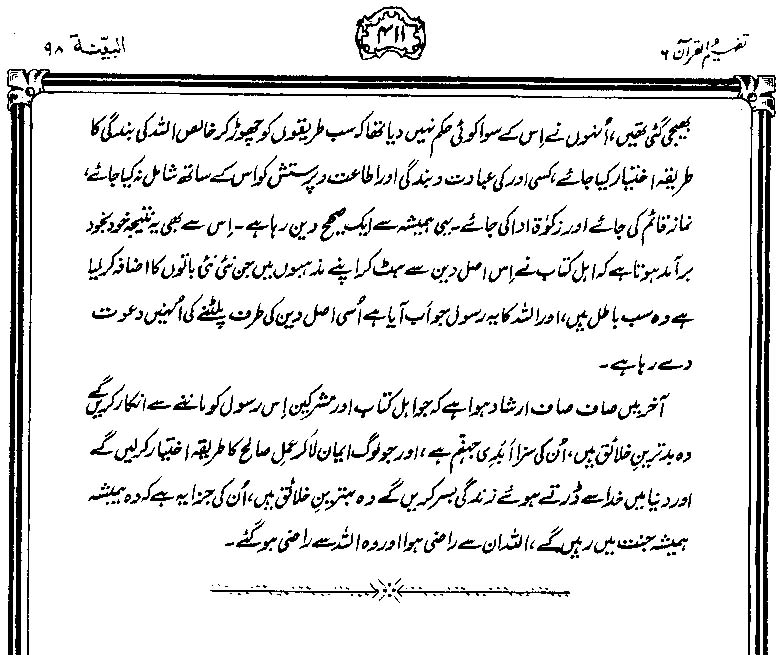 تفہیم القرآن ۶
۴۱۱
البیّنۃ ۹۸
بھیجی گئی تھیں، اُنہوں نے اِس کے سوا کوئی حکم نہیں دیا تھا کہ سب طریقوں کو چھوڑ کر خالص اللہ کی بندگی کا
طریقہ اختیار کیا جائے، کسی اور کی عبادت و بندگی اور اطاعت و پرستش کو اس کے ساتھ شامل نہ کیا جائے،
نماز قائم کی جائے اور زکوٰۃ ادا کی جائے۔ یہی ہمیشہ سے ایک صحیح دین رہا ہے۔ اِس سے بھی یہ نتیجہ خود بخود
برآمد ہوتا ہے کہ اہل کتاب نے اِس اصل دین سے ہٹ کر اپنے مذہبوں میں جن نئی نئی باتوں کا اضافہ کر لیا
ہے وہ سب باطل ہیں، اور اللہ کا یہ رسول جو اَب آیا ہے اُسی اصل دین کی طرف پلٹنے کی اُنہیں دعوت
دے رہا ہے۔
آخر میں صاف صاف ارشاد ہوا ہے کہ جو اہل کتاب اور مشرکین اِس رسول کو ماننے سے انکار کریں گے
وہ بدترین خلائق ہیں، اُن کی سزا اَبَدی جہنّم ہے، اور جو لوگ ایمان لا کر عملِ صالح کا طریقہ اختیار کر لیں گے
اور دنیا میں خدا سے ڈرتے ہوئے زندگی بسر کریں گے وہ بہترینِ خلائق ہیں، اُن کی جزا یہ ہے کہ وہ ہمیشہ
ہمیشہ جنت میں رہیں گے، اللہ ان سے راضی ہوا اور وہ اللہ سے راضی ہو گئے۔